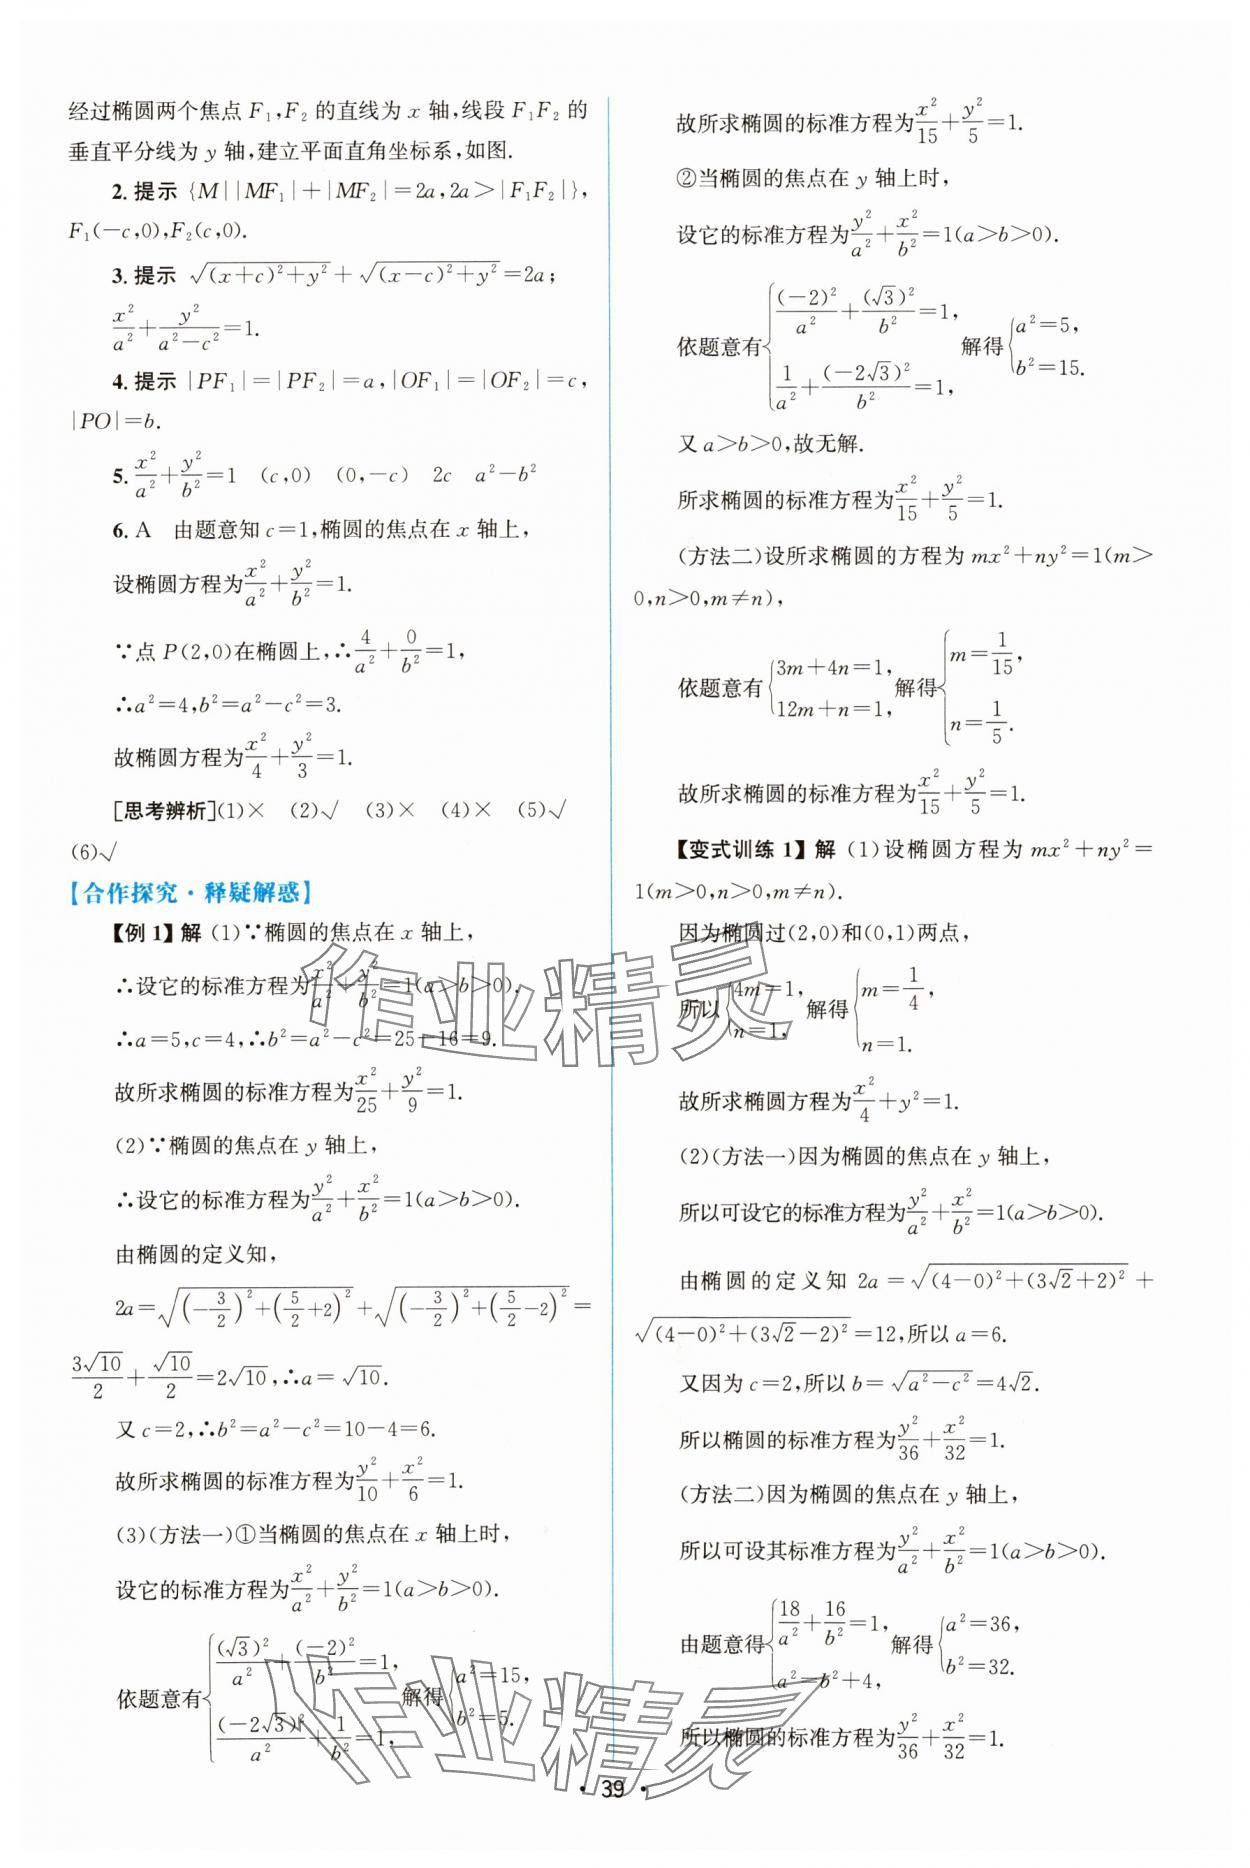 经过椭圆两个焦点 F₁,F₂ 的直线为 x 轴,线段 F₁F₂ 的
垂直平分线为 y 轴,建立平面直角坐标系,如图.
2. 提示 {M||MF₁|+|MF₂|=2a,2a>|F₁F₂|},
F₁(-c,0),F₂(c,0).
3. 提示 √((x+c)²+y²)+√((x-c)²+y²)=2a;
x²/a²+y²/(a²-c²)=1.
4. 提示 |PF₁|=|PF₂|=a,|OF₁|=|OF₂|=c,
|PO|=b.
5. x²/a²+y²/b²=1 (c,0) (0,-c) 2c a²-b²
6. A 由题意知 c=1,椭圆的焦点在 x 轴上,
设椭圆方程为x²/a²+y²/b²=1.
∵点 P(2,0)在椭圆上,∴4/a²+0/b²=1,
∴a²=4,b²=a²-c²=3.
故椭圆方程为x²/4+y²/3=1.
[思考辨析](1)× (2)√ (3)× (4)× (5)√
(6)√
【合作探究·释疑解惑】
【例 1】解 (1)∵椭圆的焦点在 x 轴上,
∴设它的标准方程为x²/a²+y²/b²=1(a>b>0).
∴a=5,c=4,∴b²=a²-c²=25-16=9.
故所求椭圆的标准方程为x²/25+y²/9=1.
(2)∵椭圆的焦点在 y 轴上,
∴设它的标准方程为y²/a²+x²/b²=1(a>b>0).
由椭圆的定义知,
2a=√((-3/2)²+(5/2+2)²)+√((-3/2)²+(5/2-2)²)=
3√10/2+√10/2=2√10,∴a=√10.
又 c=2,∴b²=a²-c²=10-4=6.
故所求椭圆的标准方程为y²/10+x²/6=1.
(3)(方法一)①当椭圆的焦点在 x 轴上时,
设它的标准方程为x²/a²+y²/b²=1(a>b>0).
依题意有{(√3)²/a²+(-2)²/b²=1, (-2√3)²/a²+1/b²=1, 解得{a²=15, b²=5.
故所求椭圆的标准方程为x²/15+y²/5=1.
②当椭圆的焦点在 y 轴上时,
设它的标准方程为y²/a²+x²/b²=1(a>b>0).
依题意有{(-2)²/a²+(√3)²/b²=1, 1/a²+(-2√3)²/b²=1, 解得{a²=5, b²=15.
又 a>b>0,故无解.
所求椭圆的标准方程为x²/15+y²/5=1.
(方法二)设所求椭圆的方程为 mx²+ny²=1(m>
0,n>0,m≠n),
依题意有{3m+4n=1, 12m+n=1, 解得{m=1/15, n=1/5.
故所求椭圆的标准方程为x²/15+y²/5=1.
【变式训练 1】解 (1)设椭圆方程为 mx²+ny²=
1(m>0,n>0,m≠n).
因为椭圆过(2,0)和(0,1)两点,
所以{4m=1, n=1, 解得{m=1/4, n=1.
故所求椭圆方程为x²/4+y²=1.
(2)(方法一)因为椭圆的焦点在 y 轴上,
所以可设它的标准方程为y²/a²+x²/b²=1(a>b>0).
由椭圆的定义知 2a=√((4-0)²+(3√2+2)²)+
√((4-0)²+(3√2-2)²)=12,所以 a=6.
又因为 c=2,所以 b=√(a²-c²)=4√2.
所以椭圆的标准方程为y²/36+x²/32=1.
(方法二)因为椭圆的焦点在 y 轴上,
所以可设其标准方程为y²/a²+x²/b²=1(a>b>0).
由题意得{18/a²+16/b²=1, a²=b²+4, 解得{a²=36, b²=32.
所以椭圆的标准方程为y²/36+x²/32=1.
作业精灵
作业精灵
· 39 ·